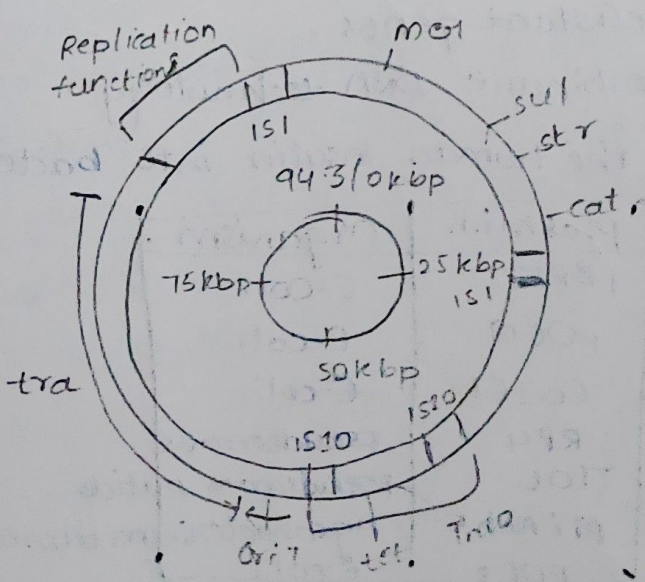 Replication
functions
mer
sul
str
cat.
IS1
94.3/0 kbp
75 kbp
25 kbp
IS1
50 kbp
tra
IS10
IS10
Ori T
tet.
Tn10